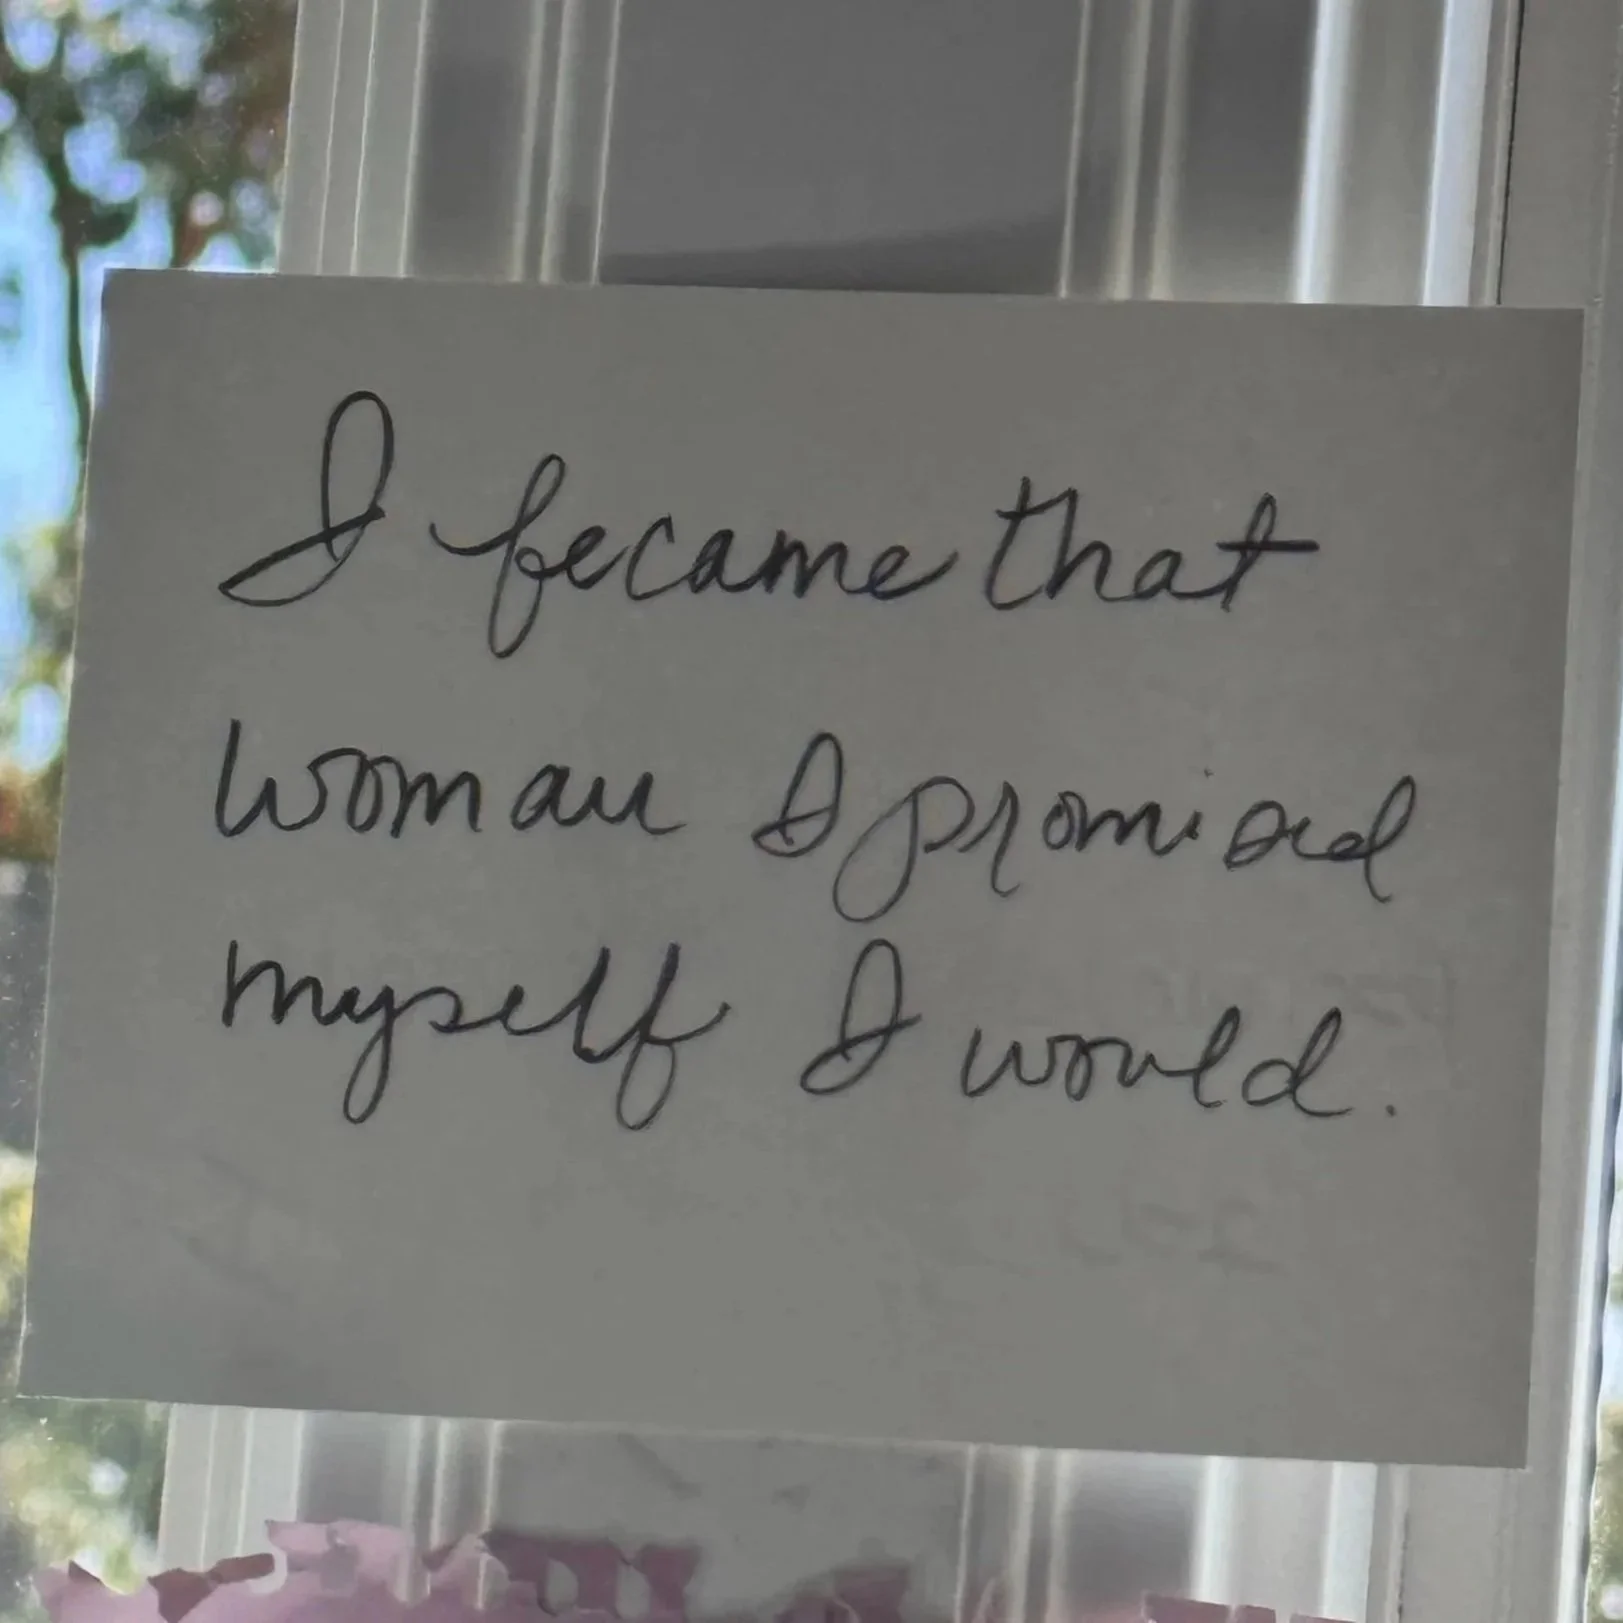 I became that
woman I promised
myself I would.